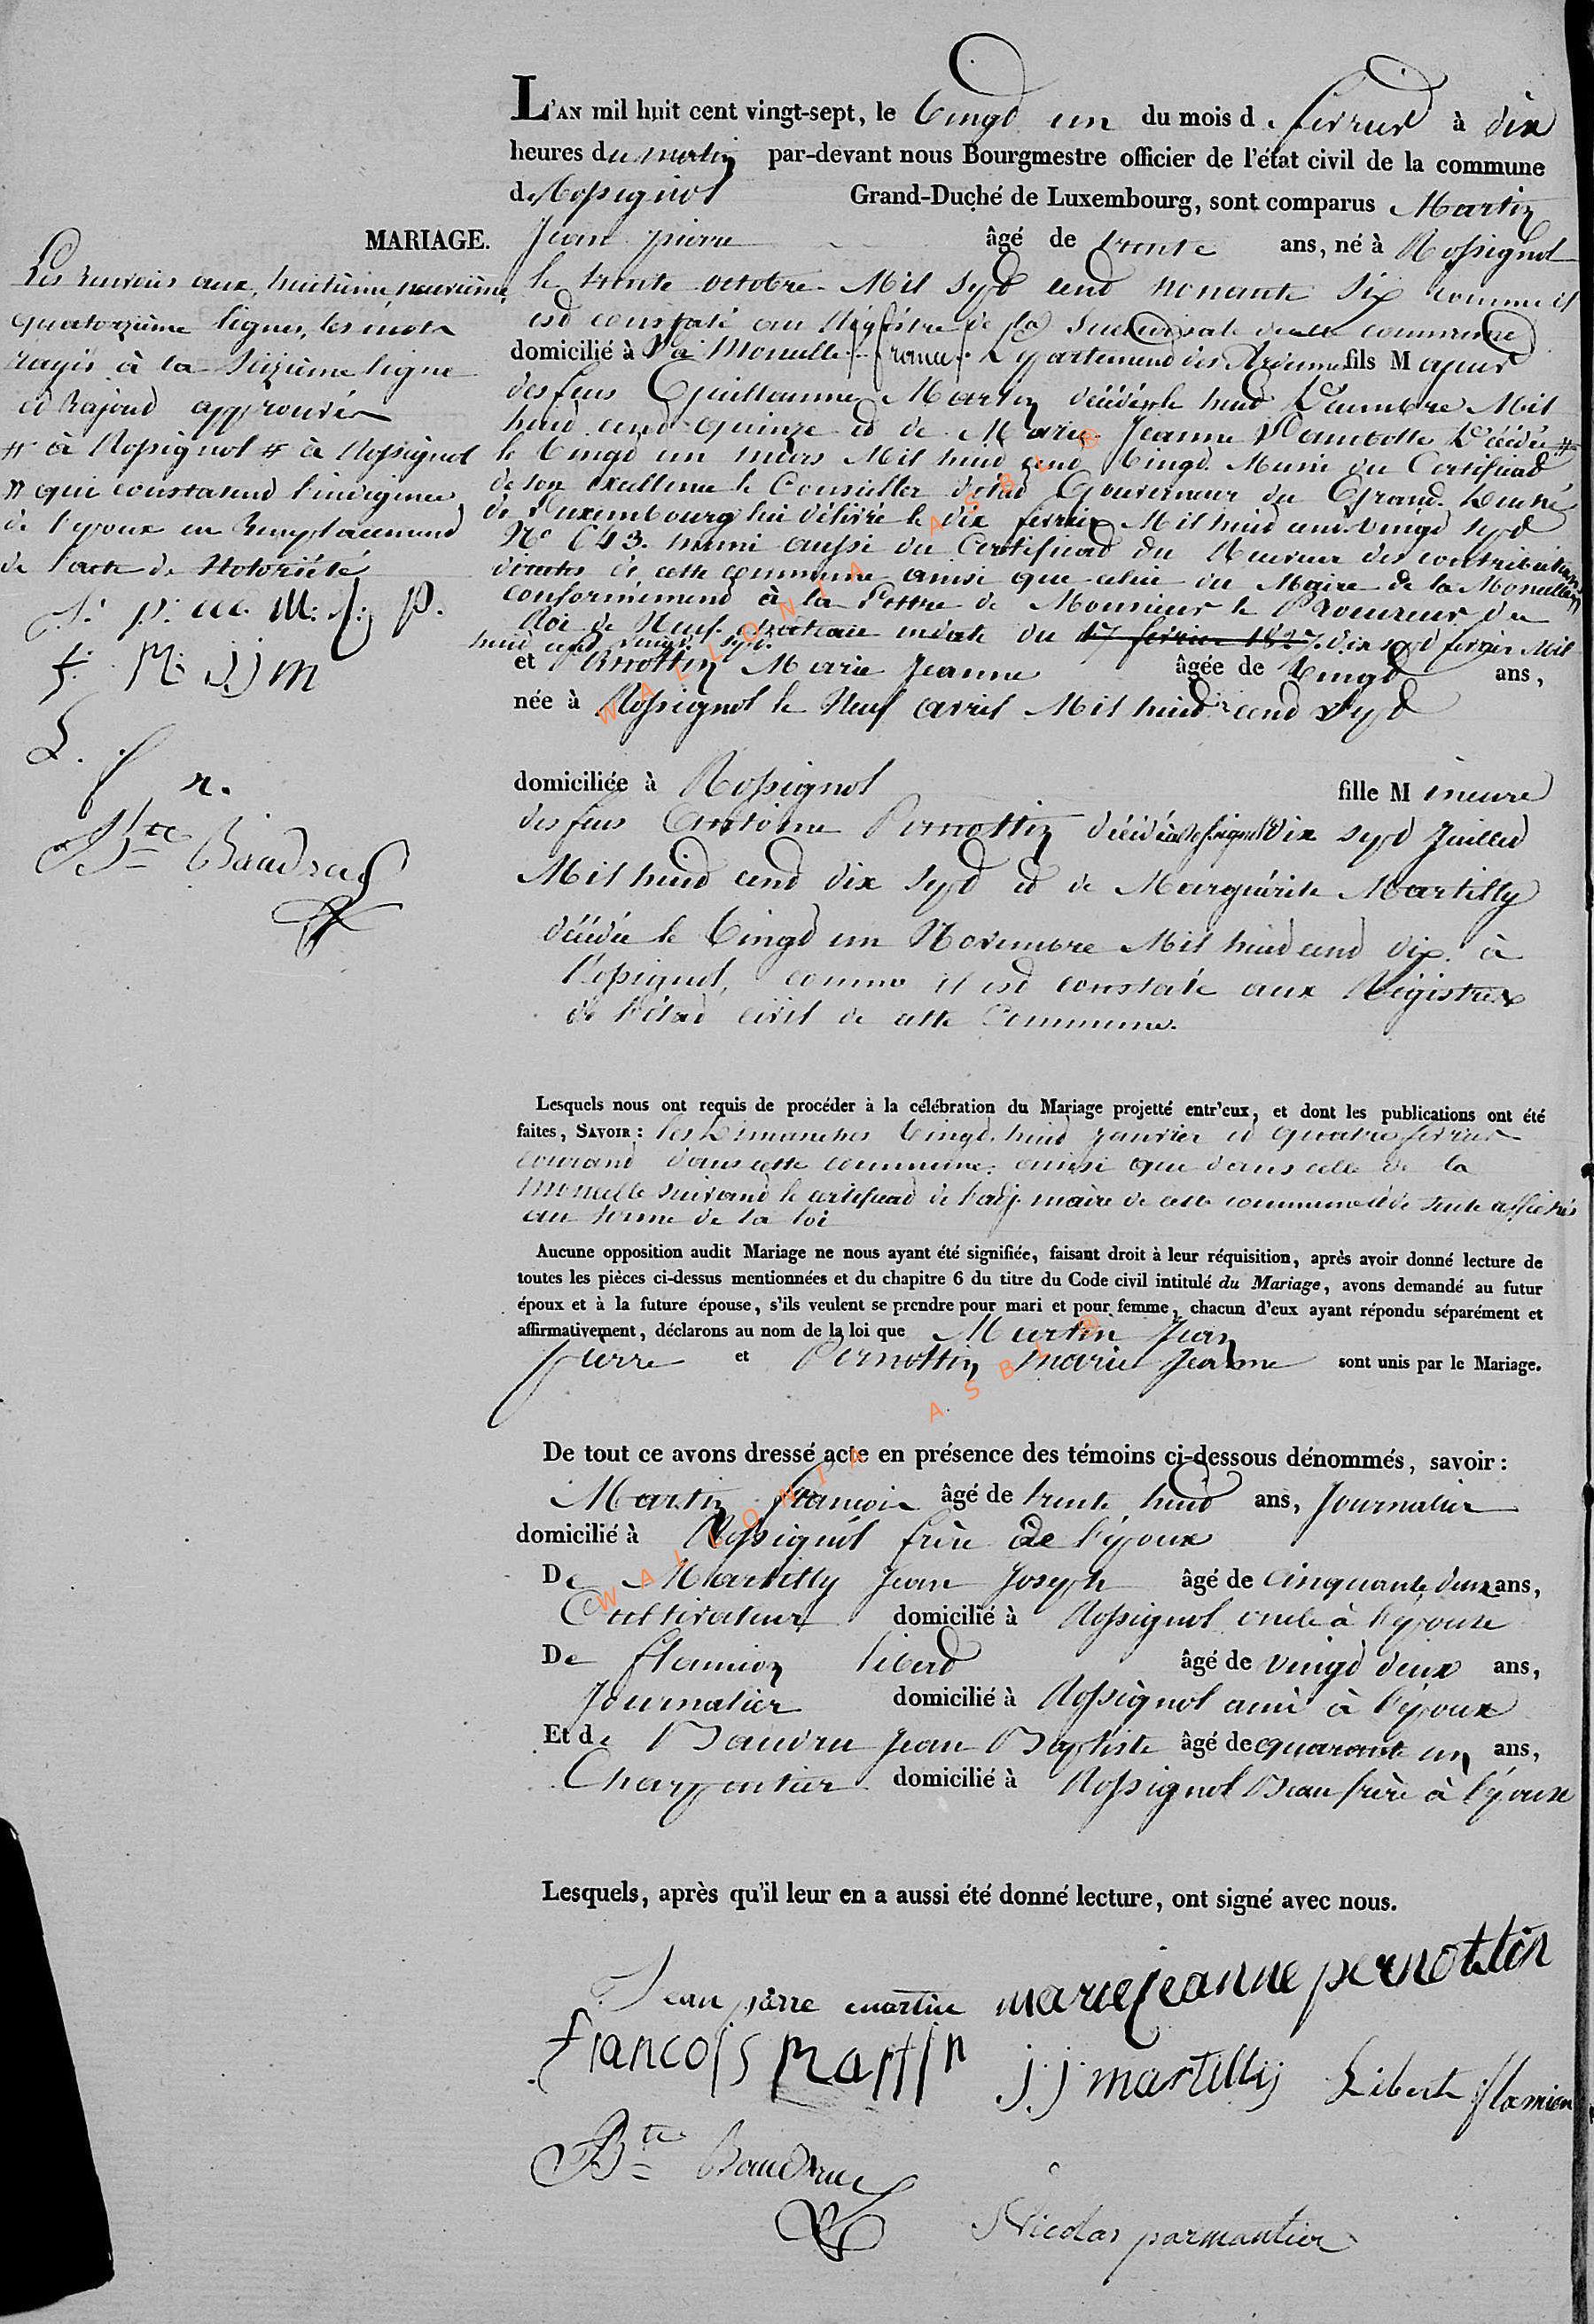 L'AN mil huit cent vingt-sept, le Vingt un du mois de fevrier à dix
heures du matin par-devant nous Bourgmestre officier de l'état civil de la commune
de Rossignol Grand-Duché de Luxembourg, sont comparus Martin
Jean pierre âgé de trente ans, né à Rossignol
le trente octobre Mil Sept cent nonante Six comme il
est constaté au Régistre de la Succursale de la commune
domicilié à La Moncelle france Département des Ardennes fils Majeur
des feus Guillaume Martin décédé le huit Décembre Mil
huit cent quinze et de Marie Jeanne Décédée #
le Vingt un mars Mil huit cent Vingt. Muni du Certificat
de son excellence le Conseiller d'état Gouverneur du Grand Duché
de Luxembourg lui délivré le dix fevrier Mil huit cent Vingt Sept
N° 643. muni aussi du Certificat du Receveur des contributions
directes de cette commune ainsi que celui du Maire de la Moncelle #
conformément à la Lettre de Monsieur le Procureur du
Roi de Neufchateau en date du 17 fevrier 1827. dix sept fevrier Mil
huit cent vingt sept.
et Pernottin Marie Jeanne âgée de Vingt ans,
née à Rossignol le Neuf avril Mil huit cent Sept
domiciliée à Rossignol fille Mineure
des feus Antoine Pernottin décédé à Rossignol Dix sept Juillet
Mil huit cent dix Sept et de Marguérite Martilly
décédée le Vingt un Novembre Mil huit cent dix à
Rossignol, comme il est constaté aux Régistres
de l'état civil de cette Commune.
MARIAGE.
Les renvois aux huitième, neuvième,
quatorzième lignes, les mots
rayés à la Seizième ligne
et Rajout approuvés
# à Rossignol # à Rossignol
# qui constatent l'indigence
de l'époux en Remplacement
de l'acte de Notoriété
J. p. M. M. J. P.
f. M. J j m
L. f
n.
Bte Baudrue
Lesquels nous ont requis de procéder à la célébration du Mariage projetté entr'eux, et dont les publications ont été
faites, SAVOIR: les Dimanches Vingt huit janvier et quatre fevrier
courant dans cette commune ainsi que dans celle de la
Moncelle suivant le certificat de l'adj. maire de cette commune et de suite affichés
au terme de la loi
Aucune opposition audit Mariage ne nous ayant été signifiée, faisant droit à leur réquisition, après avoir donné lecture de
toutes les pièces ci-dessus mentionnées et du chapitre 6 du titre du Code civil intitulé du Mariage, avons demandé au futur
époux et à la future épouse, s'ils veulent se prendre pour mari et pour femme, chacun d'eux ayant répondu séparément et
affirmativement, déclarons au nom de la loi que Martin Jean
pierre et Pernottin Marie Jeanne sont unis par le Mariage.
De tout ce avons dressé acte en présence des témoins ci-dessous dénommés, savoir:
Martin francois âgé de trente huit ans, Journalier
domicilié à Rossignol frère de l'époux
De Martilly Jean Joseph âgé de cinquante deux ans,
Cultivateur domicilié à Rossignol oncle à l'épouse
De flamion libert âgé de vingt deux ans,
Journalier domicilié à Rossignol ami à l'époux
Et de Baudru Jean Baptiste âgé de quarante un ans,
Charpentier domicilié à Rossignol Beau frère à l'épouse
Lesquels, après qu'il leur en a aussi été donné lecture, ont signé avec nous.
Jean pierre martin marie jeanne pernottin
francois Martin j. j martilly Libert flamion
Bte Baudrue
Nicolas parmantier
WALLONIA ASBL ®
WALLONIA ASBL ®